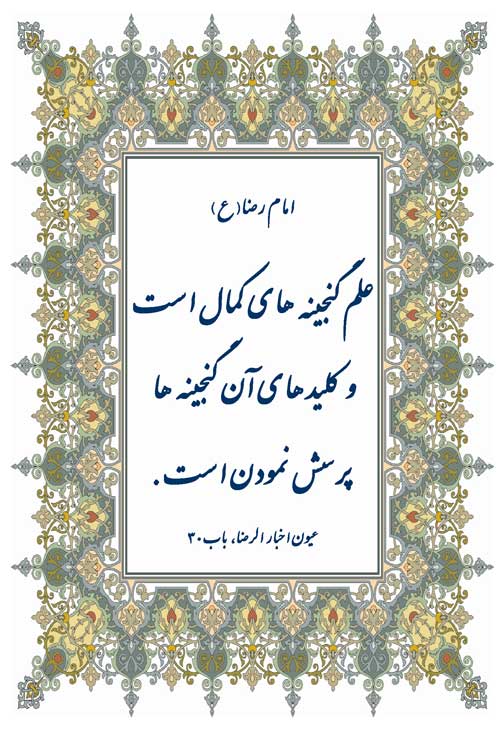 امام رضا(ع)
علم گنجینه های کمال است
و کلیدهای آن گنجینه ها
پرسش نمودن است.
عیون اخبار الرضا، باب ۳۰